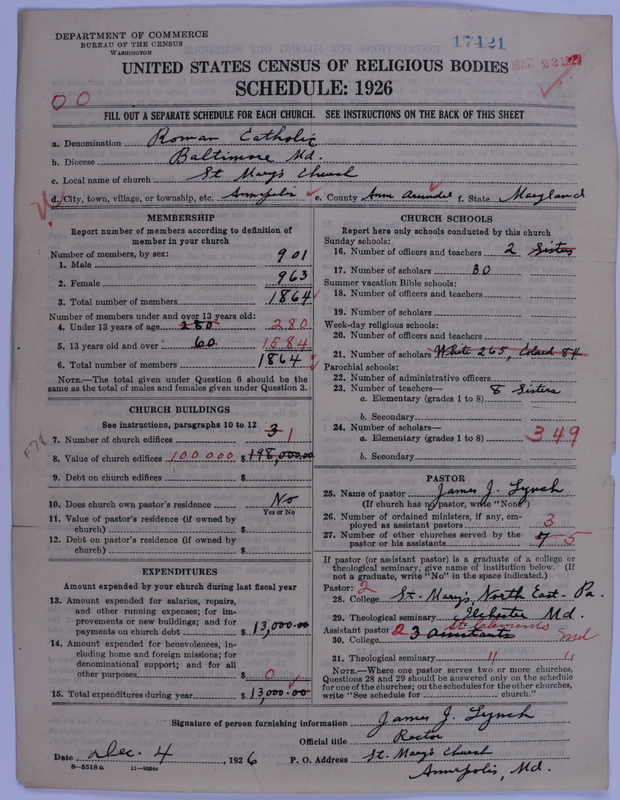 DEPARTMENT OF COMMERCE
BUREAU OF THE CENSUS
WASHINGTON
17421
UNITED STATES CENSUS OF RELIGIOUS BODIES
SCHEDULE: 1926
00
FILL OUT A SEPARATE SCHEDULE FOR EACH CHURCH. SEE INSTRUCTIONS ON THE BACK OF THIS SHEET
a. Denomination Roman Catholic
b. Diocese Baltimore Md.
c. Local name of church St Mary's Church
d. City, town, village, or township, etc. Annapolis e. County Anne Arundel f. State Maryland
MEMBERSHIP
Report number of members according to definition of
member in your church
Number of members, by sex:
1. Male 901
2. Female 963
3. Total number of members 1864
Number of members under and over 13 years old:
4. Under 13 years of age 280 280
5. 13 years old and over 60 1584
6. Total number of members 1864
NOTE.—The total given under Question 6 should be the
same as the total of males and females given under Question 3.
CHURCH BUILDINGS
See instructions, paragraphs 10 to 12
7. Number of church edifices 3 1
8. Value of church edifices 100000 $198,000.00
9. Debt on church edifices $
10. Does church own pastor's residence No
Yes or No
11. Value of pastor's residence (if owned by
church) $
12. Debt on pastor's residence (if owned by
church) $
EXPENDITURES
Amount expended by your church during last fiscal year
13. Amount expended for salaries, repairs,
and other running expenses; for im-
provements or new buildings; and for
payments on church debt $13,000.00
14. Amount expended for benevolences, in-
cluding home and foreign missions; for
denominational support; and for all
other purposes $0
15. Total expenditures during year $13,000.00
CHURCH SCHOOLS
Report here only schools conducted by this church
Sunday schools:
16. Number of officers and teachers 2 Sisters
17. Number of scholars 30
Summer vacation Bible schools:
18. Number of officers and teachers
19. Number of scholars
Week-day religious schools:
20. Number of officers and teachers
21. Number of scholars White 265, Colored 84
Parochial schools:
22. Number of administrative officers
23. Number of teachers— 8 Sisters
a. Elementary (grades 1 to 8)
b. Secondary
24. Number of scholars—
a. Elementary (grades 1 to 8) 349
b. Secondary
PASTOR
25. Name of pastor James J. Lynch
(If church has no pastor, write "None")
26. Number of ordained ministers, if any, em-
ployed as assistant pastors 3
27. Number of other churches served by the
pastor or his assistants 7 5
If pastor (or assistant pastor) is a graduate of a college or
theological seminary, give name of institution below. (If
not a graduate, write "No" in the space indicated.)
Pastor: 2
28. College St. Mary's, North East - Pa.
29. Theological seminary Ilchester Md.
Assistant pastor 2 3 assistants St Clements
30. College Md
31. Theological seminary " "
NOTE.—Where one pastor serves two or more churches,
Questions 28 and 29 should be answered only on the schedule
for one of the churches; on the schedules for the other churches,
write "See schedule for church."
Signature of person furnishing information James J. Lynch
Official title Rector
Date Dec. 4, 1926 P. O. Address St. Mary's Church
Annapolis, Md.
8—5518a 11—9054a